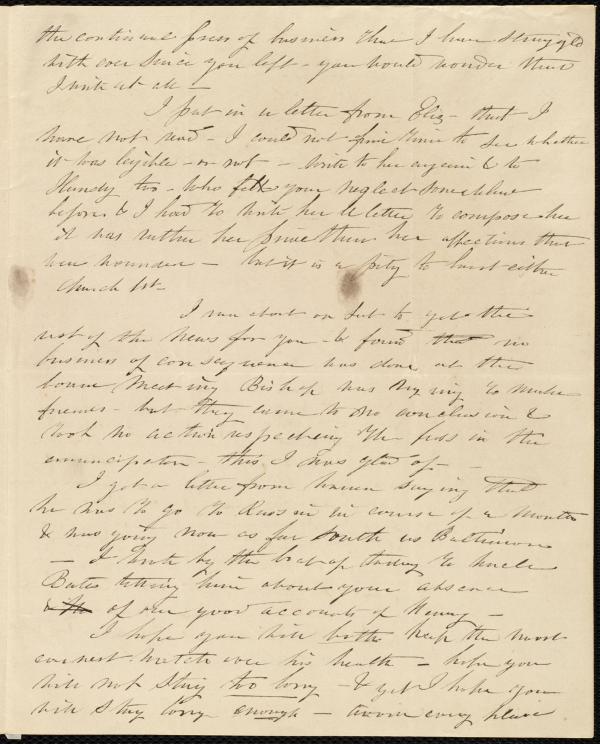 the continual press of business that I have struggled
with ever since you left - you would wonder that
I write at all -
I put in a letter from Eliz - that I
have not read - I could not find time to see whether
it was legible - or not - write to her again & to
too - who felt your neglect somewhat
before & I had to write her a letter to compose her
it was rather her pride than her affections that
were wounded - but it is a pity to hurt either
Church 1st -
I run about on Sat to get the
rest of the news for you - & found that no
business of consequence was done at the
meeting Bishop was trying to make
friends - but they came to no conclusion &
took no action respecting the fuss in the
emancipator - this I was glad of -
I got a letter from saying that
he has to go to Russia in course of a month
& was going now as far South as Baltimore
- I write by the today to uncle
Bates telling him about your absence
& of our good accounts of Henry -
I hope you will both keep the most
earnest watch over his health - hope you
will not stay too long - & yet I hope you
will stay long enough - every